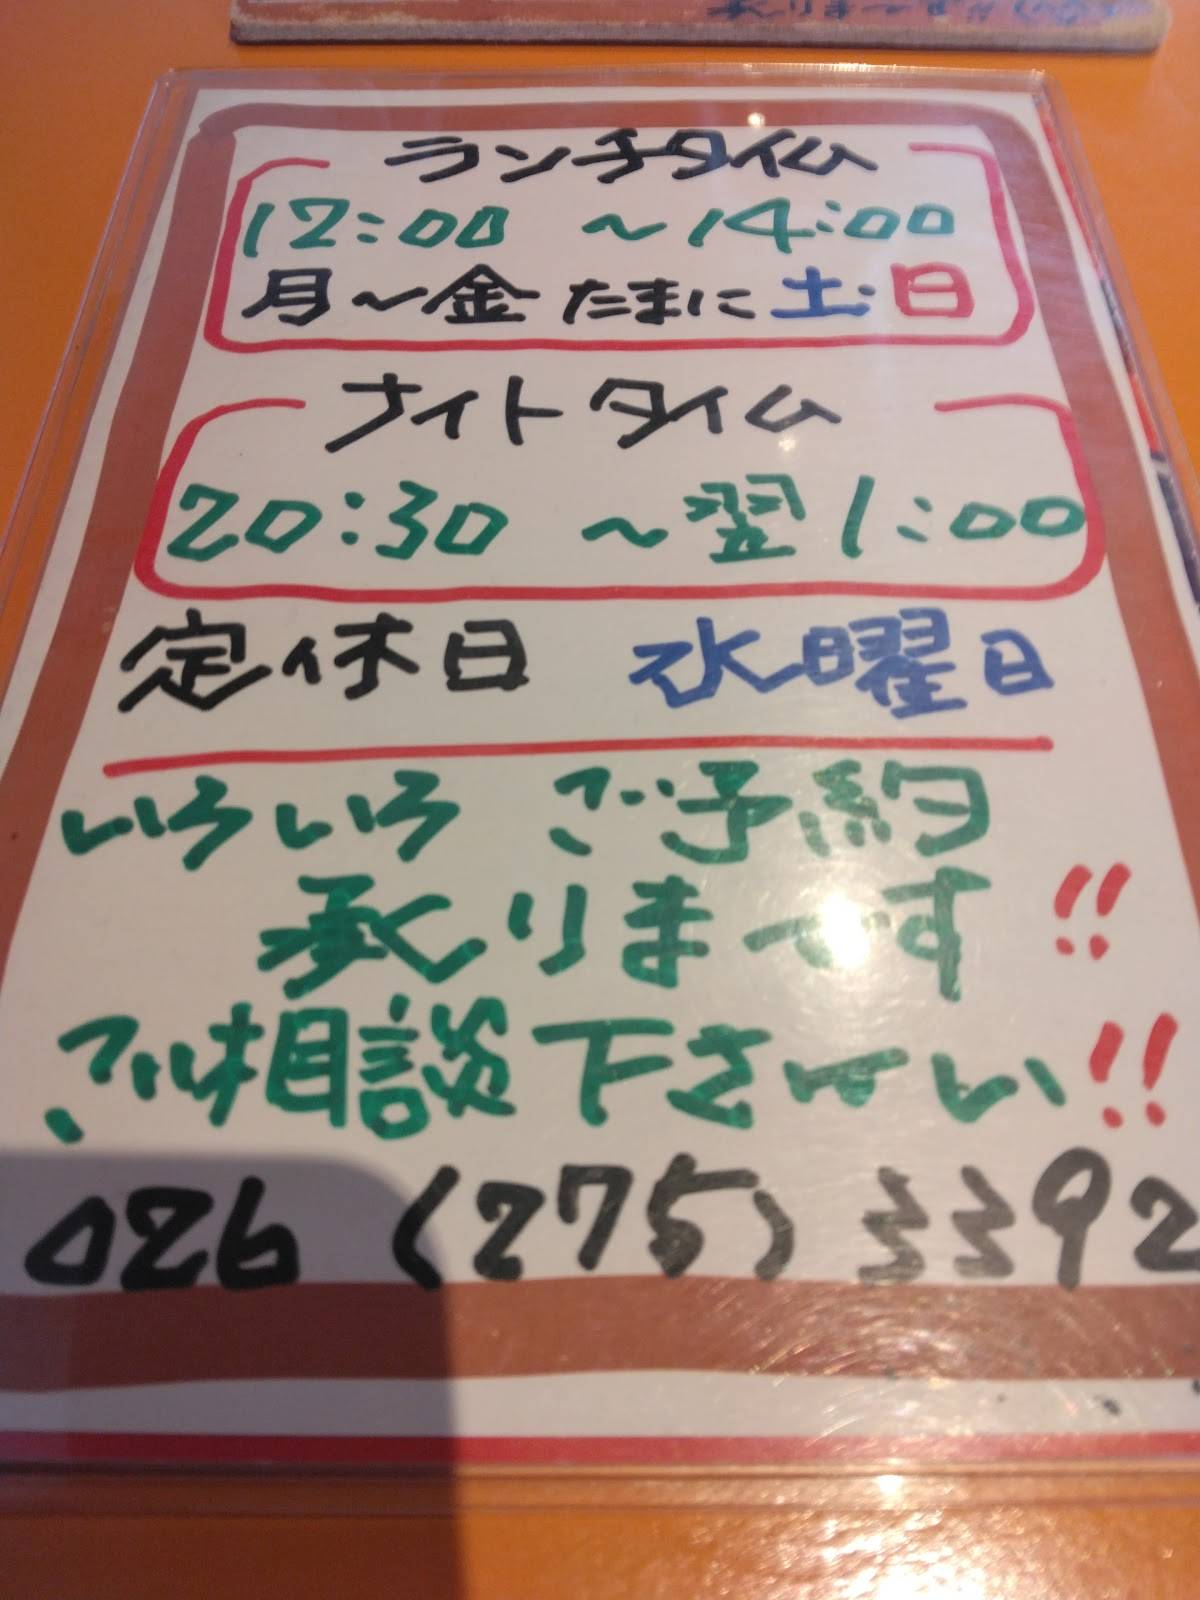 ランチタイム
12:00 ～14:00
月～金 たまに 土日
ナイトタイム
20:30 ～翌1:00
定休日 水曜日
いろいろ ご予約
承ります!!
ご相談下さ～い!!
026 (275) 3392